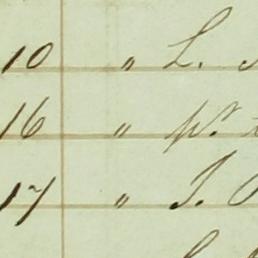 10 " L.
16 " pr
17 " J.